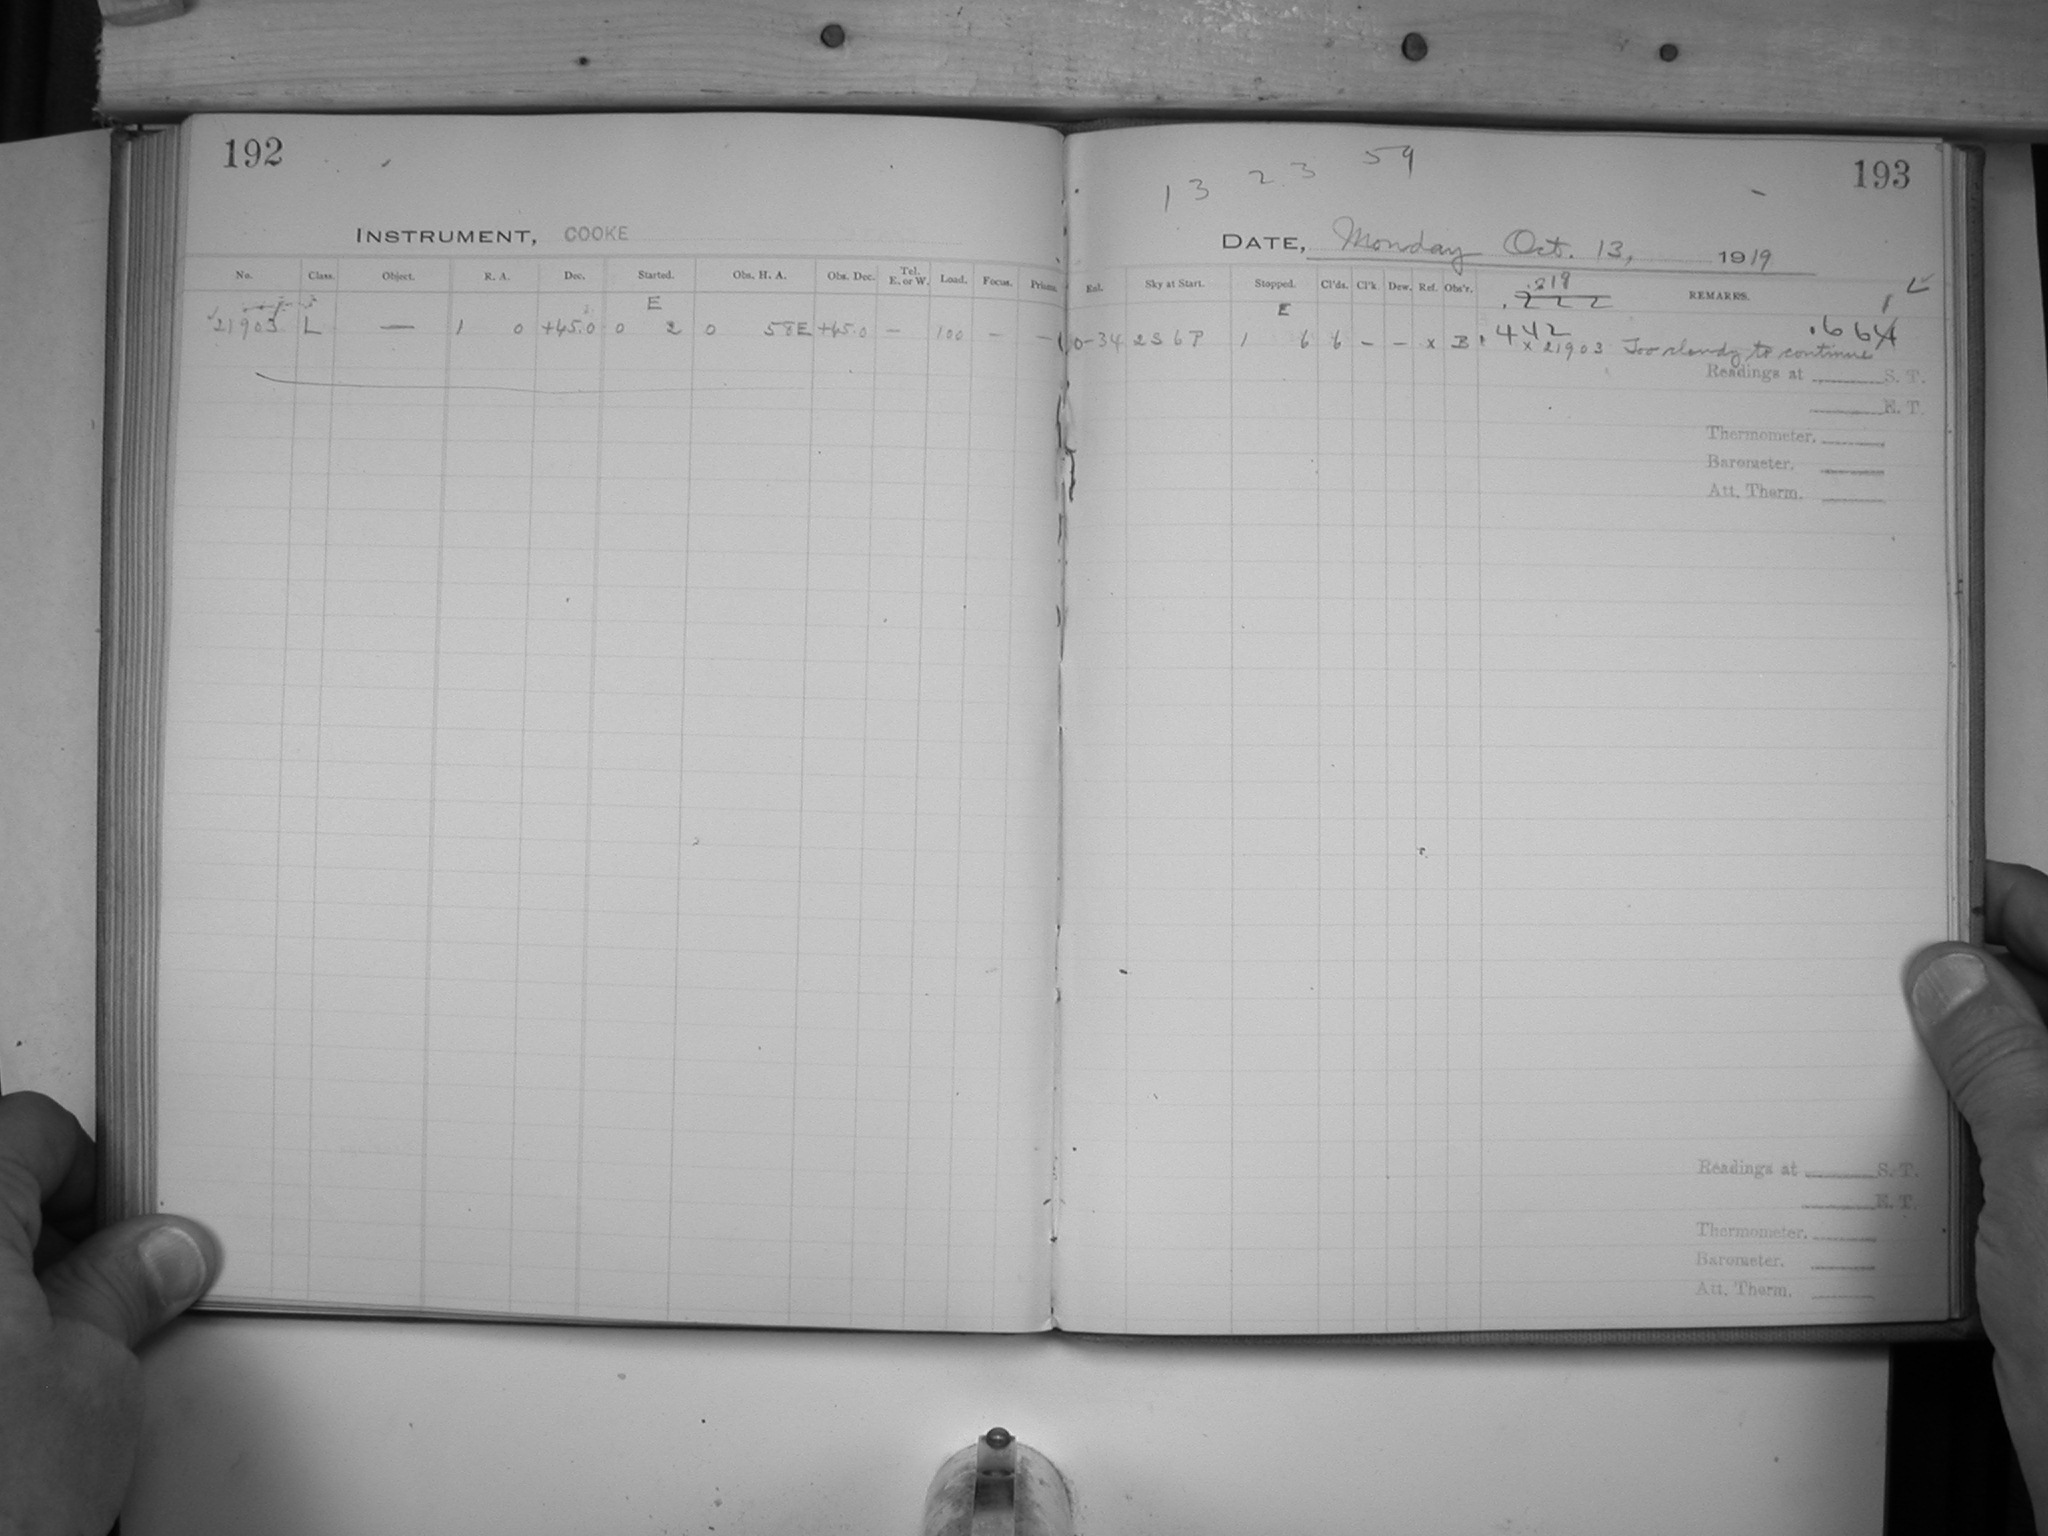 192
INSTRUMENT, COOKE
No. Class. Object. R. A. Dec. Started. Obs. H. A. Obs. Dec. Tel. E. or W. Load. Focus. Prisms.
E
21903 L — 1 0 +45.0 0 2 0 58E +45.0 — 100 — —
193
13 23 59
DATE, Monday Oct. 13, 1919
Exl. Sky at Start. Stopped. Cl'ds. Cl'k Dew. Ref. Obs'r. REMARKS.
.219
.222
E
0-34 2S6P 1 6 6 — — x B .442 .664
x 21903 Too cloudy to continue
Readings at ______ S. T.
______ E. T.
Thermometer. ______
Barometer. ______
Att. Therm. ______
Readings at ______ S. T.
______ E. T.
Thermometer. ______
Barometer. ______
Att. Therm. ______